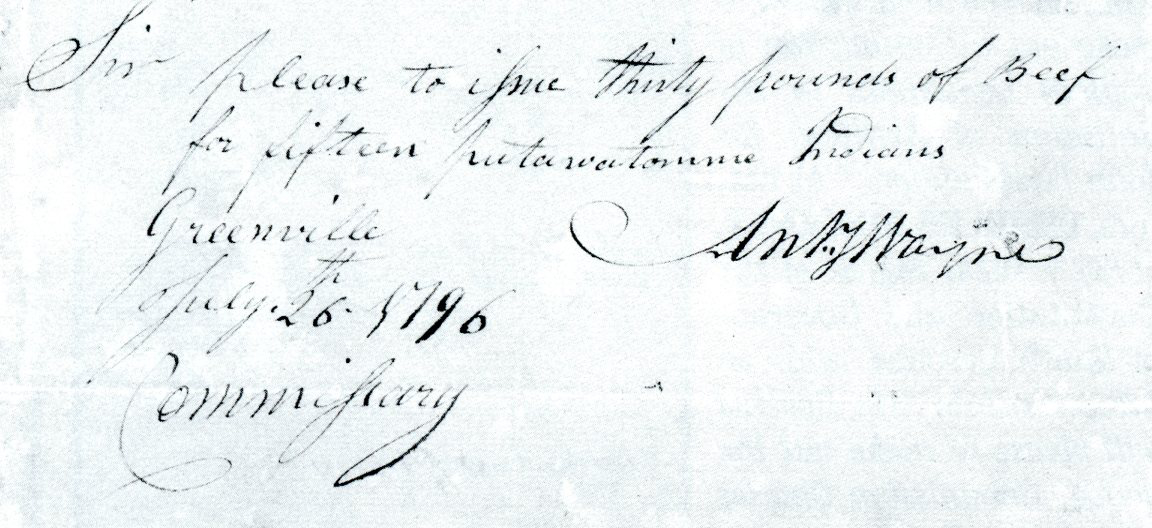 Sir please to issue thirty pounds of Beef
for fifteen putawatomme Indians
Greenville
Anty Wayne
July. 26th 1796
Commissary